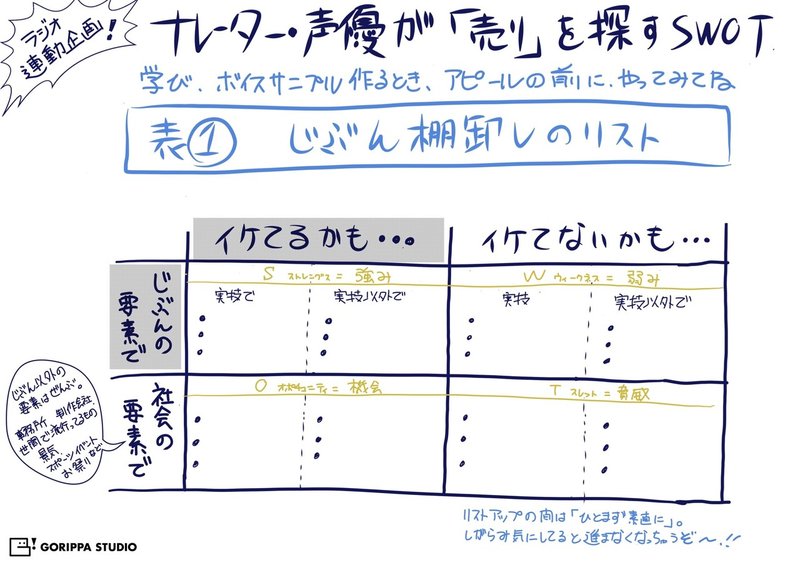 ラジオ
連動企画!
ナレーター・声優が「売り」を探すSWOT
学び、ボイスサンプル作るとき、アピールの前に、やってみてね
表① じぶん棚卸しのリスト
イケてるかも・・・
イケてないかも・・・
じぶんの
要素で
S ストレングス = 強み
W ウィークネス = 弱み
実技で
実技以外で
実技
実技以外で
社会の
要素で
O オポチュニティ = 機会
T スレット = 脅威
じぶん以外の
要素はぜんぶ。
事務所、制作会社、
世間で流行ってるもの
景気、
スポーツイベント
お祭りなど
リストアップの間は「ひとまず素直に」。
しがらみ気にしてると進まなくなっちゃうぞ〜!!
GORIPPA STUDIO